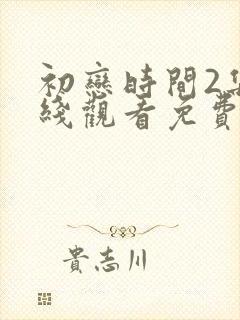 初戀時間2集
綫觀看免費
貴志川